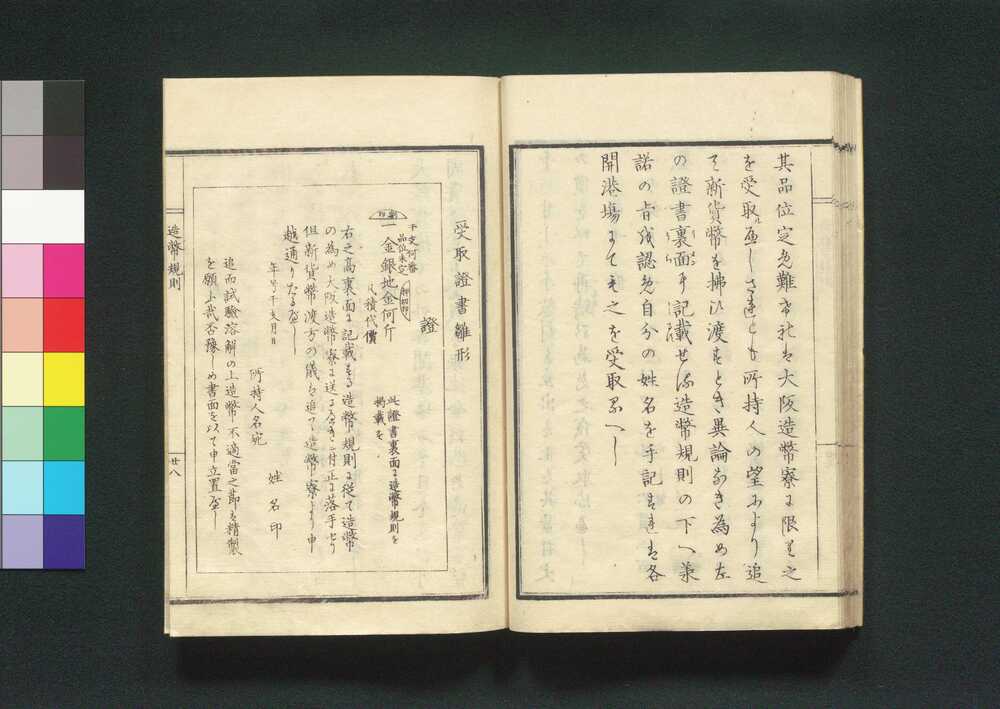 其品位定め難き礼は大阪造幣寮に限り之
を受取るへしされとも所持人の望により追
て新貨幣を拂ひ渡すとき異論なき為め左
の證書裏面に記載せる造幣規則の下へ承
諾の旨を認め自分の姓名を手記すれは各
開港場にても之を受取るへし
受取證書雛形
證
干支何番
品位未定
割印
一金銀地金何斤
凡積代價
此證書裏面に造幣規則を
掲載す
右之高裏面に記載する造幣規則に従て造幣
の為め大阪造幣寮に送るへき付正に落手せり
但新貨幣渡方の儀は追て造幣寮より申
越通りたるへし
年号干支月日
姓名印
所持人名宛
追而試験溶解の上造幣に不適當之節は精製
を願上哉否豫しめ書面を以て申立置へし
造幣規則
廿八